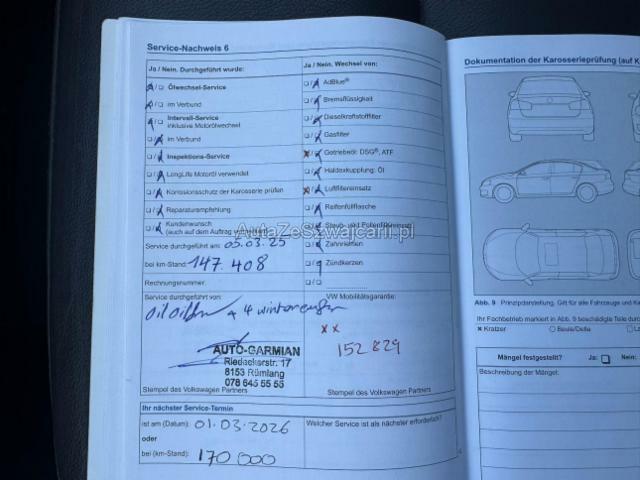 Service-Nachweis 6
Ja / Nein. Durchgeführt wurde:
Ölwechsel-Service
im Verbund
Intervall-Service
inklusive Motorölwechsel
im Verbund
Inspektions-Service
LongLife Motoröl verwendet
Korrosionsschutz der Karosserie prüfen
Reparaturempfehlung
Kundenwunsch
(auch auf dem Auftrag vermerken)
Service durchgeführt am: 05.03.25
bei km-Stand: 147.408
Rechnungsnummer:
Service durchgeführt von:
+ 4 winter
AUTO-GARMIAN
Riedackerstr. 17
8153 Rümlang
078 645 55 55
Stempel des Volkswagen Partners
Ihr nächster Service-Termin
ist am (Datum): 01.03.2026
oder
bei (km-Stand): 170 000
Ja / Nein. Wechsel von:
AdBlue®
Bremsflüssigkeit
Dieselkraftstofffilter
Gasfilter
Getriebeöl: DSG®, ATF
Haldexkupplung: Öl
Luftfiltereinsatz
Reifenfüllflasche
Staub- und Pollenfiltereinsatz
Zahnriemen
Zündkerzen
VW Mobilitätsgarantie:
x x
152 829
Stempel des Volkswagen Partners
Welcher Service ist als nächster erforderlich?
AutaZeSzwajcarii.pl
Dokumentation der Karosserieprüfung (auf K
Abb. 9 Prinzipdarstellung. Gilt für alle Fahrzeuge und Ka
Ihr Fachbetrieb markiert in Abb. 9 beschädigte Teile durc
x Kratzer
○ Beule/Delle
Mängel festgestellt?
Ja:
Nein:
Beschreibung der Mängel: